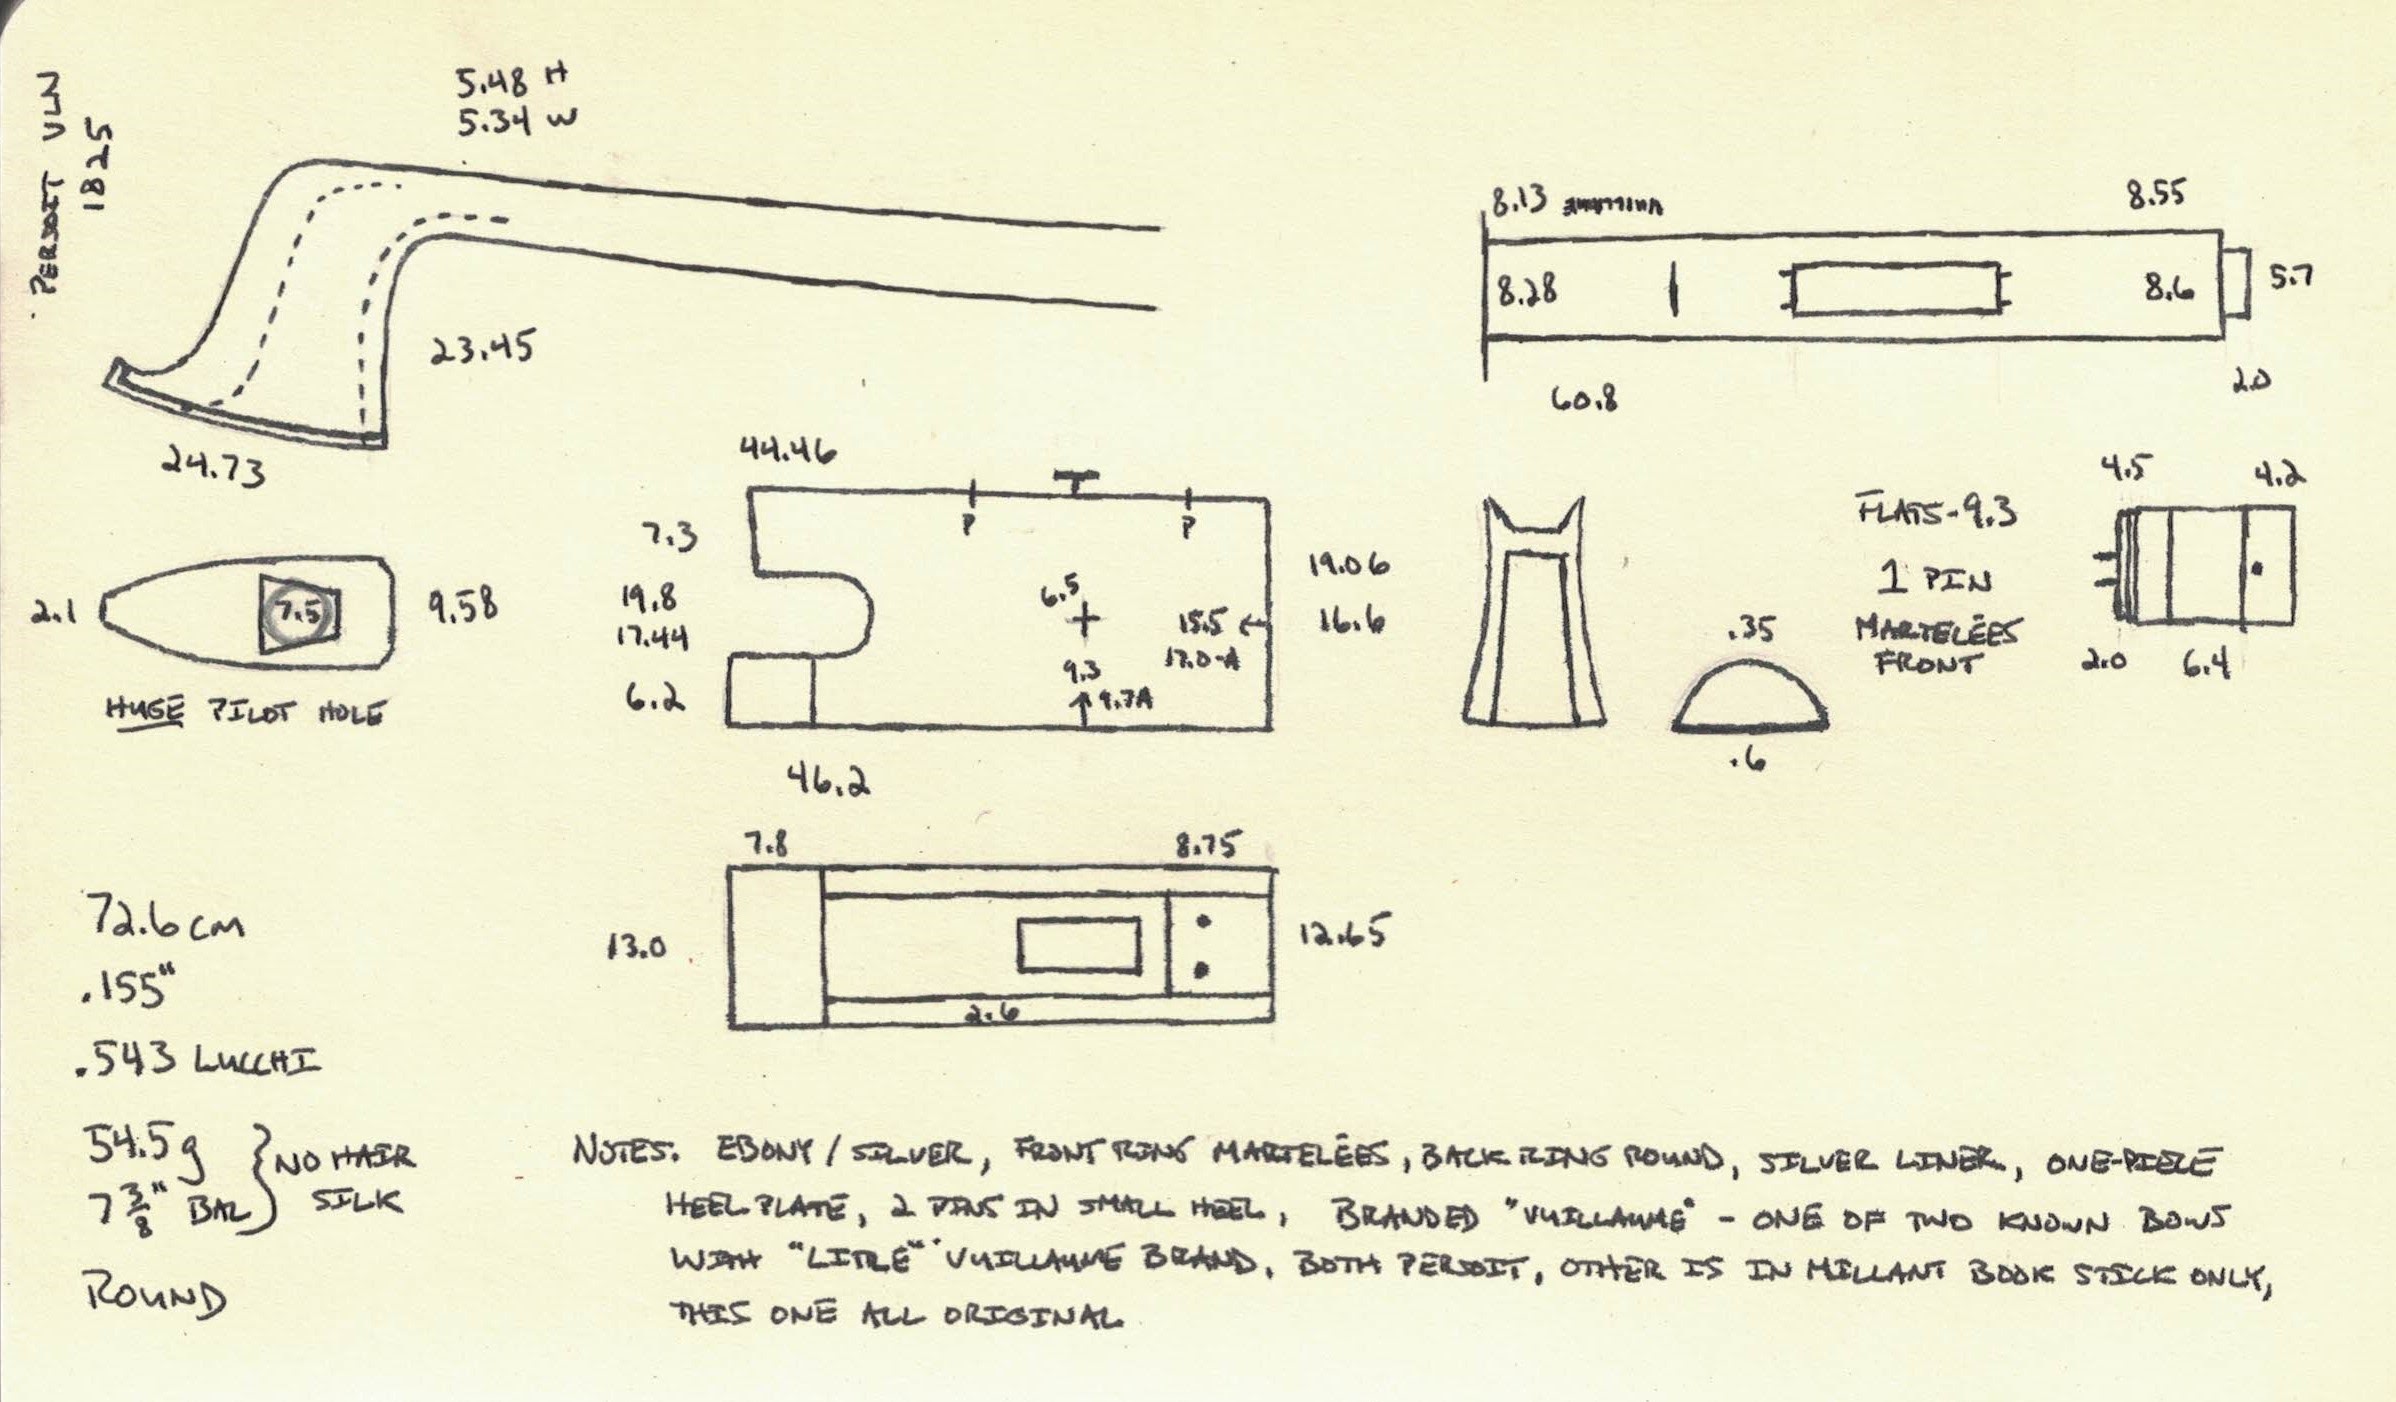 PERSOIT VLN
1825
5.48 H
5.34 W
23.45
24.73
8.13
8.55
8.28
8.6
5.7
60.8
2.0
2.1
7.5
9.58
HUGE PILOT HOLE
44.46
7.3
19.8
17.44
6.2
P
P
6.5
15.5
17.0-A
9.3
9.7A
19.06
16.6
46.2
.35
.6
FLATS-9.3
1 PIN
MARTELÉES
FRONT
4.5
4.2
2.0
6.4
7.8
8.75
13.0
12.65
2.6
72.6 cm
.155"
.543 LUCCHI
54.5g
7 3/8" BAL
NO HAIR
SILK
ROUND
NOTES: EBONY / SILVER, FRONT RING MARTELÉES, BACK RING ROUND, SILVER LINER, ONE-PIECE
HEEL PLATE, 2 PINS IN SMALL HEEL, BRANDED "VUILLAUME" - ONE OF TWO KNOWN BOWS
WITH "LITTLE" VUILLAUME BRAND. BOTH PERSOIT, OTHER IS IN MILLANT BOOK STICK ONLY,
THIS ONE ALL ORIGINAL